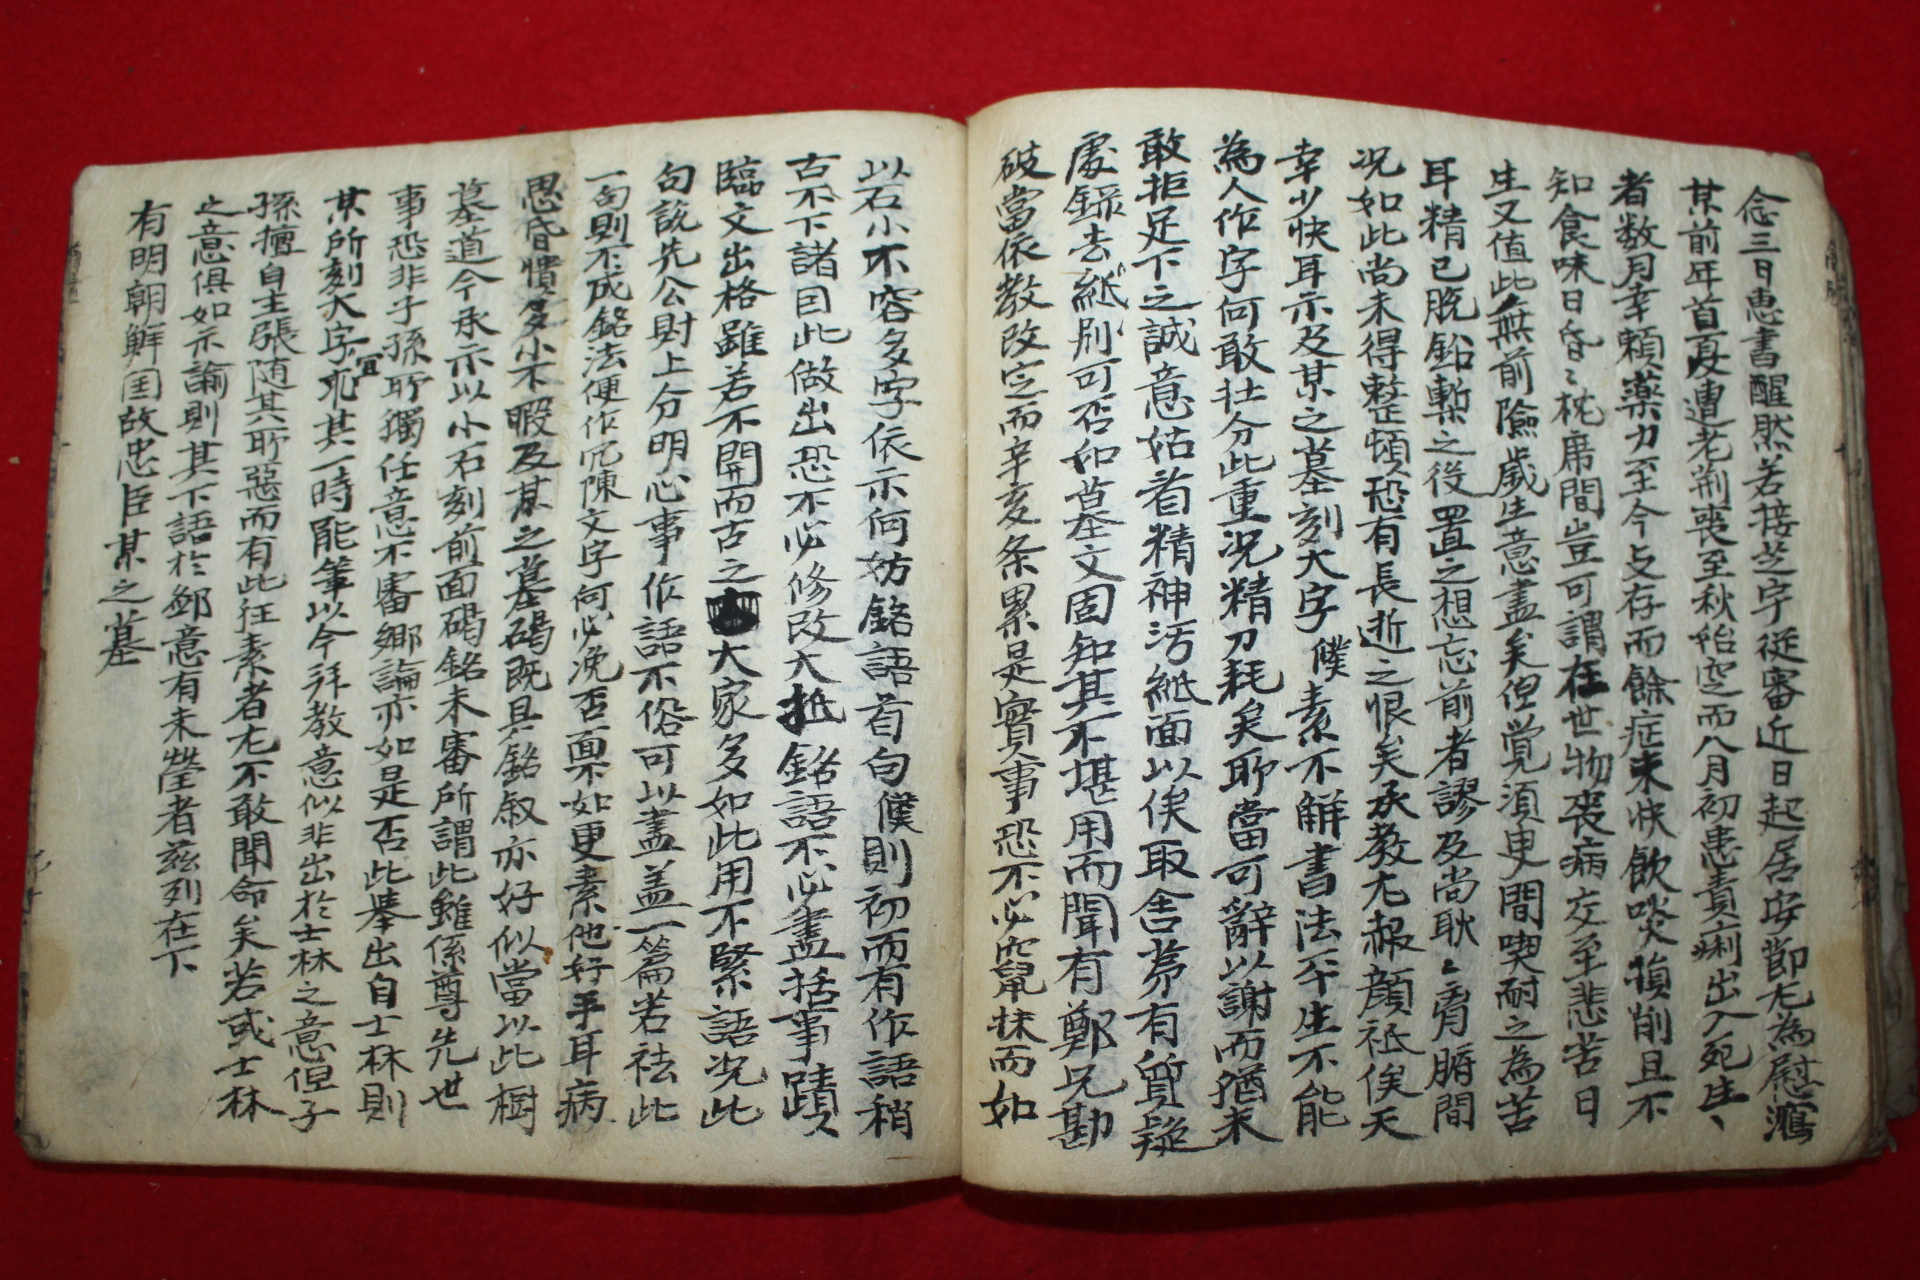 念三日惠書醒然若接芝字從審近日起居安節尤為慰瀉
某前年首夏遭老荊喪至秋始窆而八月初患責痢出入死生、
者数月幸賴藥力至今支存而餘症未快飲啖損削且不
知食味日昏〻枕席間豈可謂在世物喪病交至悲苦日
生又值此無前險歲生意盡矣但覚須臾間喫耐之為苦
耳精已脫鉛槧之役置之想忘前者謬及尚耿〻胷腑間
况如此尚未得整頓恐有長逝之恨矣承教尤赧顔祇俟天
幸少快耳示及某之墓刻大字僕素不解書法平生不能
為人作字何敢壮分此重况精力耗矣那當可辭以謝而猶未
敢拒足下之誠意姑着精神污紙面以俟取舍為有質疑
處録去紙別可否如墓文固知其不堪用而聞有鄭兄勘
破當依教改定而辛亥条累是實事恐不必竄抹而如
以石小不容多字依示何妨銘語首句僕則初而有作語稍
古不下諸目此做出恐不必修改大抵銘語不必盡括事蹟
臨文出格雖若不開而古之大家多如此用不緊語况此
句說先公財上分明心事作語不俗可以盖盖一篇若祛此
一句則不成銘法便作冗陳文字何必浼否面不如更素他好手耳病
思昏憒多小不暇及某之墓碣既具銘叙亦好似當以此樹
墓道今承示以小石刻前面碣銘未審所謂此雖係尊先世
事恐非子孫所獨任意不審鄉論亦如是否此舉出自士林則
某所刻大字宜非其一時能筆以今拜教意似非出於士林之意但子
孫擅自主張隨其所惡而有此汪素者尤不敢聞命矣若或士林
之意俱如示論則其下語於鄙意有未瑩者茲列在下
有明朝鮮国故忠臣某之墓